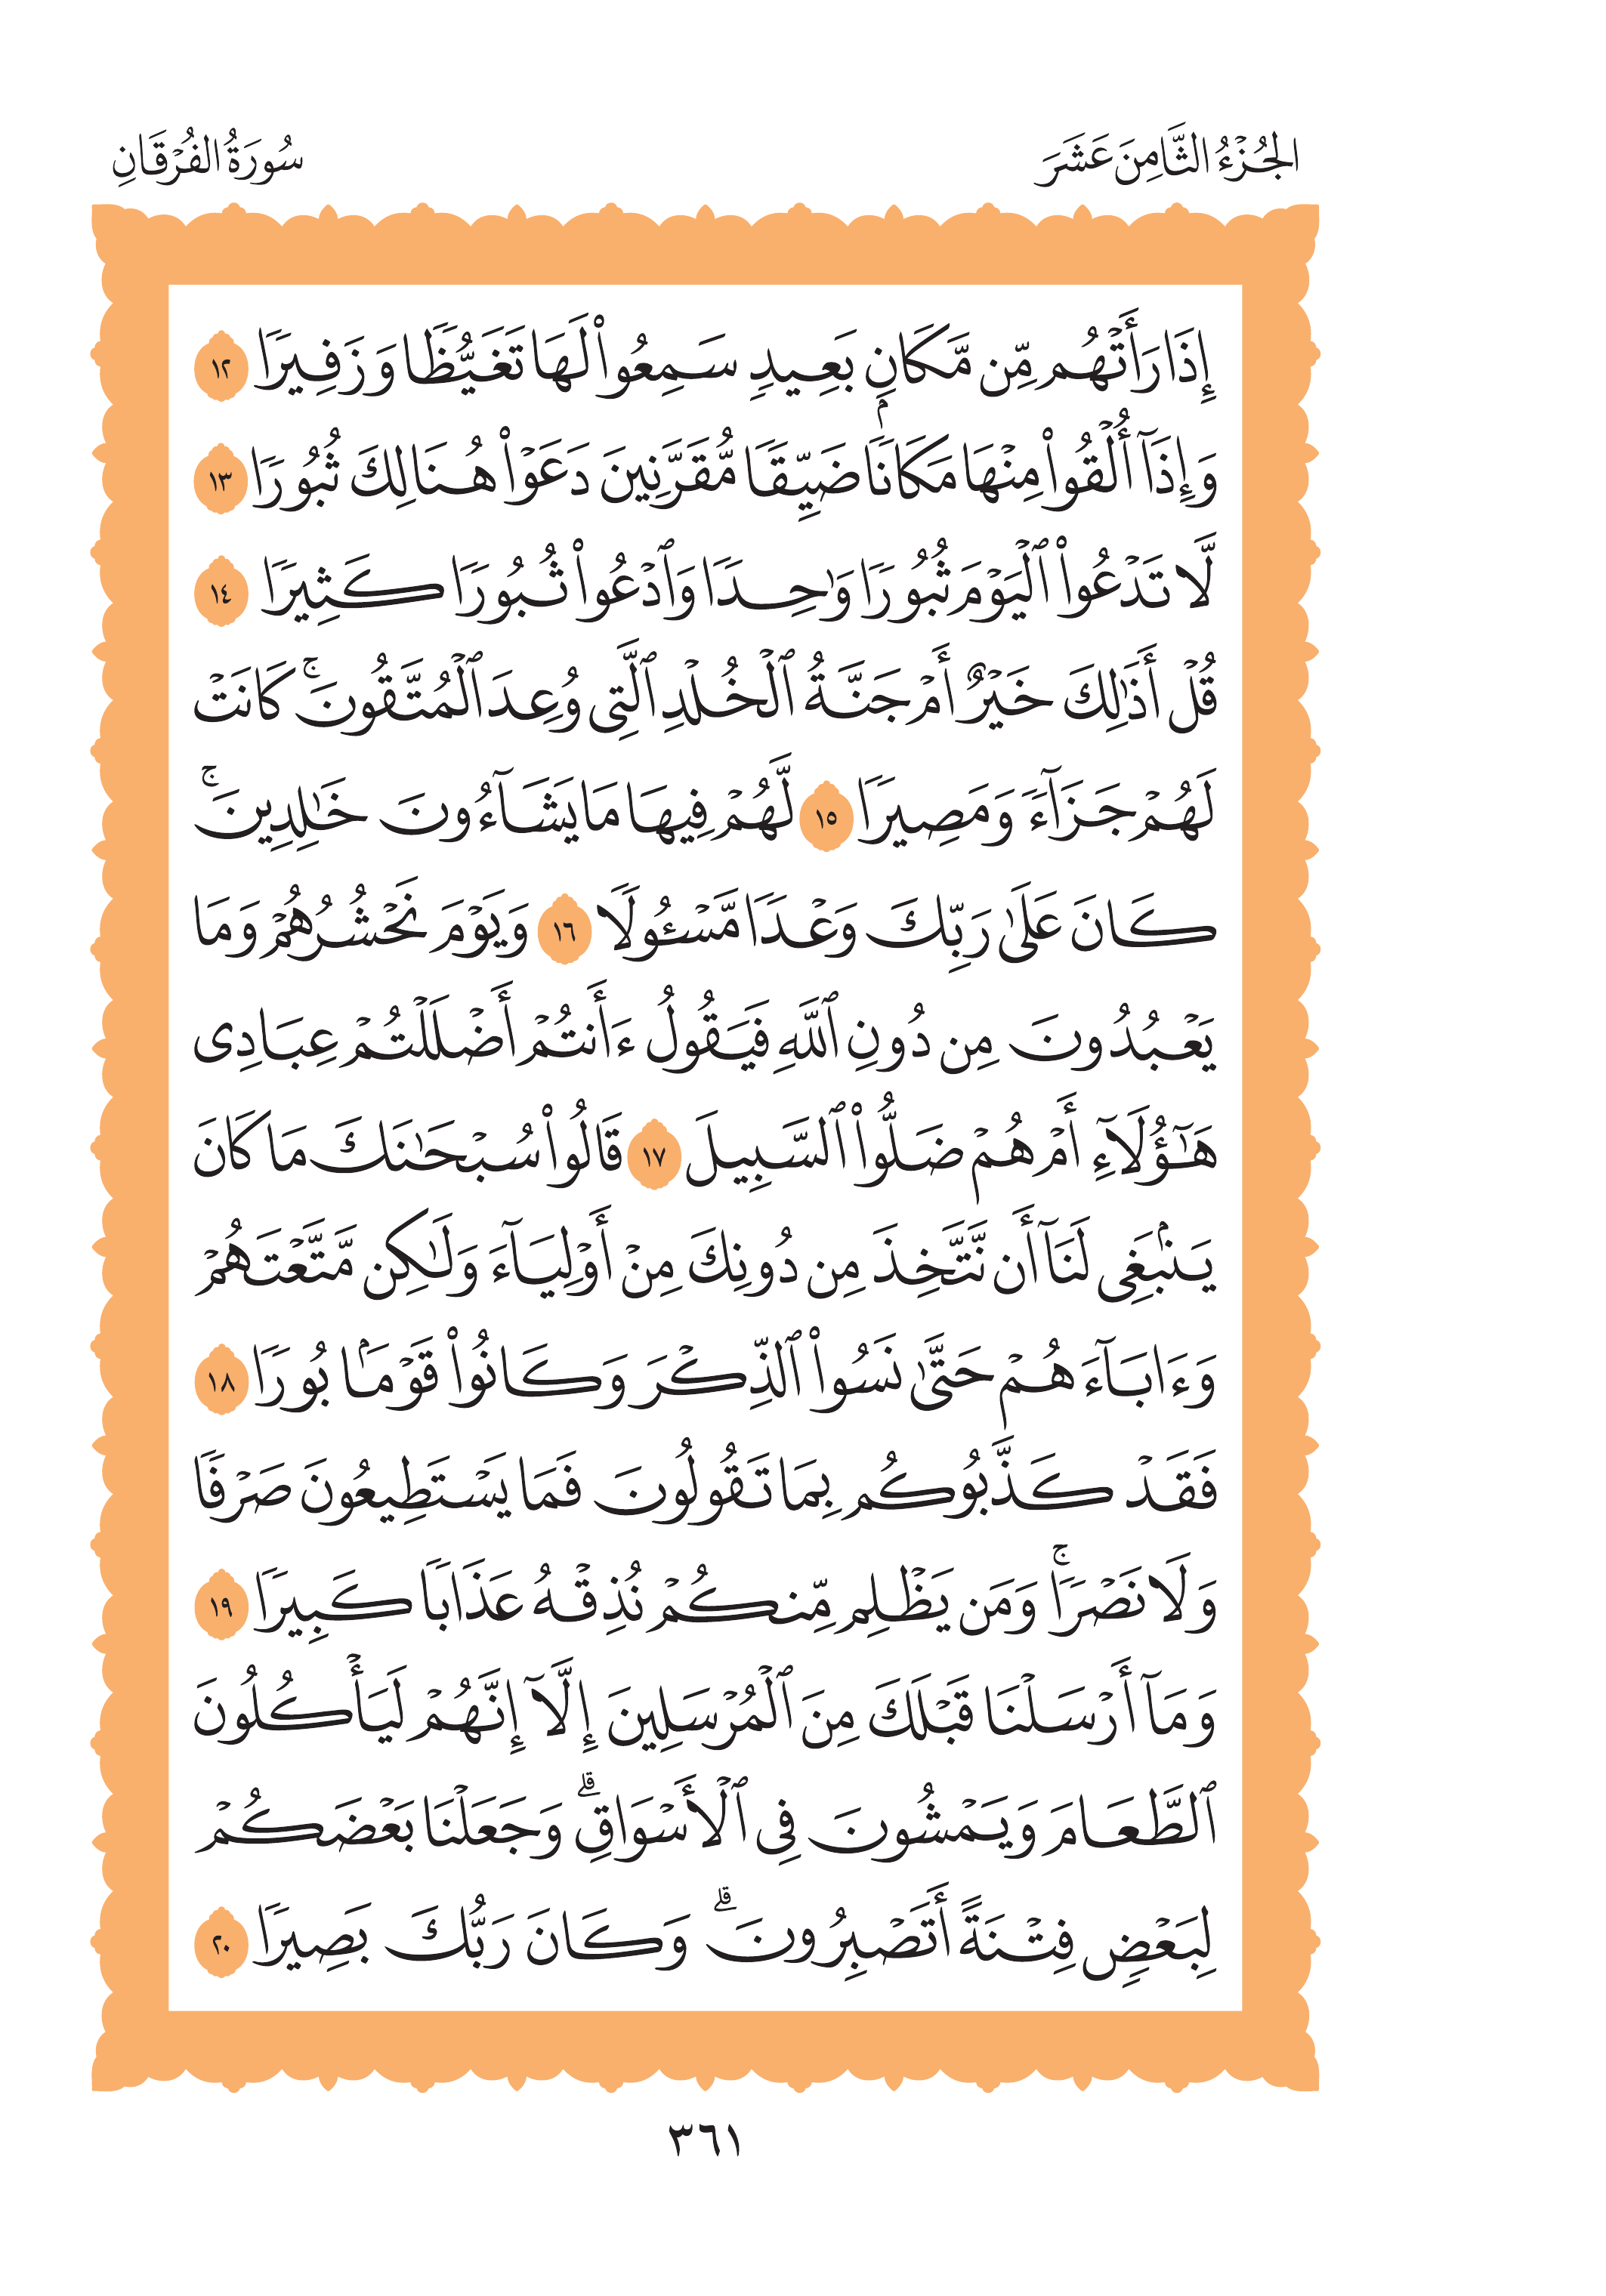 الجُزْءُ الثَّامِنَ عَشَرَ
سُورَةُ الفُرْقَانِ
إِذَا رَأَتْهُم مِّن مَّكَانِۭ بَعِيدٖ سَمِعُواْ لَهَا تَغَيُّظٗا وَزَفِيرٗا ١٢
وَإِذَآ أُلْقُواْ مِنْهَا مَكَانٗا ضَيِّقٗا مُّقَرَّنِينَ دَعَوْاْ هُنَالِكَ ثُبُورٗا ١٣
لَّا تَدْعُواْ ٱلْيَوْمَ ثُبُورٗا وَٰحِدٗا وَٱدْعُواْ ثُبُورٗا كَثِيرٗا ١٤
قُلْ أَذَٰلِكَ خَيْرٌ أَمْ جَنَّةُ ٱلْخُلْدِ ٱلَّتِى وُعِدَ ٱلْمُتَّقُونَۚ كَانَتْ
لَهُمْ جَزَآءٗ وَمَصِيرٗا ١٥ لَّهُمْ فِيهَا مَا يَشَآءُونَ خَٰلِدِينَۚ
كَانَ عَلَىٰ رَبِّكَ وَعْدٗا مَّسْـُٔولٗا ١٦ وَيَوْمَ نَحْشُرُهُمْ وَمَا
يَعْبُدُونَ مِن دُونِ ٱللَّهِ فَيَقُولُ ءَأَنتُمْ أَضْلَلْتُمْ عِبَادِى
هَٰٓؤُلَآءِ أَمْ هُمْ ضَلُّواْ ٱلسَّبِيلَ ١٧ قَالُواْ سُبْحَٰنَكَ مَا كَانَ
يَنۢبَغِى لَنَآ أَن نَّتَّخِذَ مِن دُونِكَ مِنْ أَوْلِيَآءَ وَلَٰكِن مَّتَّعْتَهُمْ
وَءَابَآءَهُمْ حَتَّىٰ نَسُواْ ٱلذِّكْرَ وَكَانُواْ قَوْمَۢا بُورٗا ١٨
فَقَدْ كَذَّبُوكُم بِمَا تَقُولُونَ فَمَا يَسْتَطِيعُونَ صَرْفٗا
وَلَا نَصْرٗاۚ وَمَن يَظْلِم مِّنكُمْ نُذِقْهُ عَذَابٗا كَبِيرٗا ١٩
وَمَآ أَرْسَلْنَا قَبْلَكَ مِنَ ٱلْمُرْسَلِينَ إِلَّآ إِنَّهُمْ لَيَأْكُلُونَ
ٱلطَّعَامَ وَيَمْشُونَ فِى ٱلْأَسْوَاقِۗ وَجَعَلْنَا بَعْضَكُمْ
لِبَعْضٖ فِتْنَةً أَتَصْبِرُونَۗ وَكَانَ رَبُّكَ بَصِيرٗا ٢٠
٣٦١